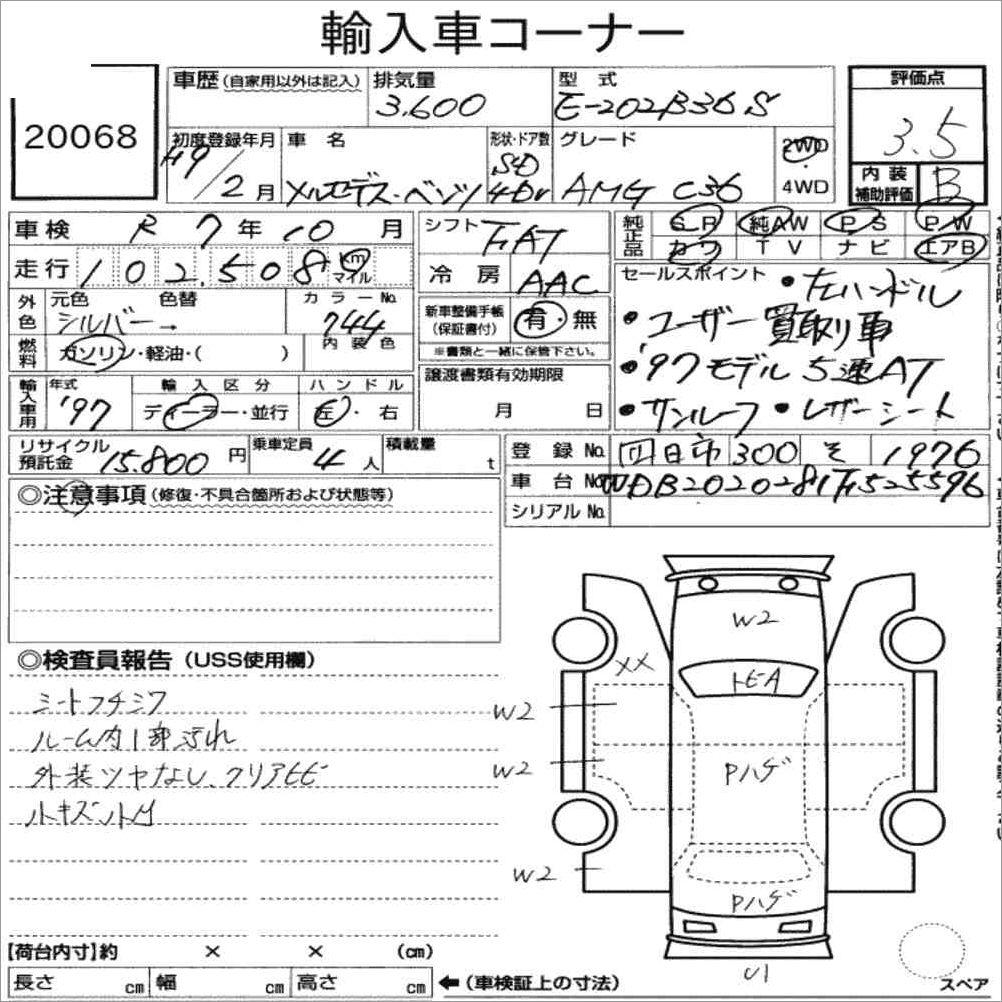 輸入車コーナー
20068
車歴(自家用以外は記入) 排気量 3.600 型式 E-202B36S 評価点 3.5
初度登録年月 H9/2月 車名 メルセデス・ベンツ 形状・ドア数 SD 4Dr グレード AMG C36 2WD・4WD 内装補助評価 B
車検 R7年10月 シフト FAT 純正品 SR 純AW PS PW
カワ TV ナビ エアB
走行 102,508 km マイル 冷房 AAC セールスポイント
・左ハンドル
外色 元色 シルバー→ 色替 カラーNo. 744 新車整備手帳(保証書付) 有・無
・ユーザー買取り車
燃料 ガソリン・軽油・( ) 内装色 ※書類と一緒に保管下さい。
・'97モデル 5速AT
輸入車用 年式 '97 輸入区分 ディーラー・並行 ハンドル 左・右 譲渡書類有効期限 月 日
・サンルーフ ・レザーシート
リサイクル預託金 15.800円 乗車定員 4人 積載量 t 登録No. 四日市 300 そ 1976
車台No. WDB2020281F525596
シリアルNo.
◎注意事項(修復・不具合箇所および状態等)
◎検査員報告(USS使用欄)
シートフチシワ
ルーム内1部汚れ
外装ツヤなし、クリアヒビ
小キズ小凹
W2
XX
トビA
W2
W2
Pハゲ
W2
Pハゲ
U1
スペア
【荷台内寸】約 × × (cm)
長さ cm 幅 cm 高さ cm ←(車検証上の寸法)